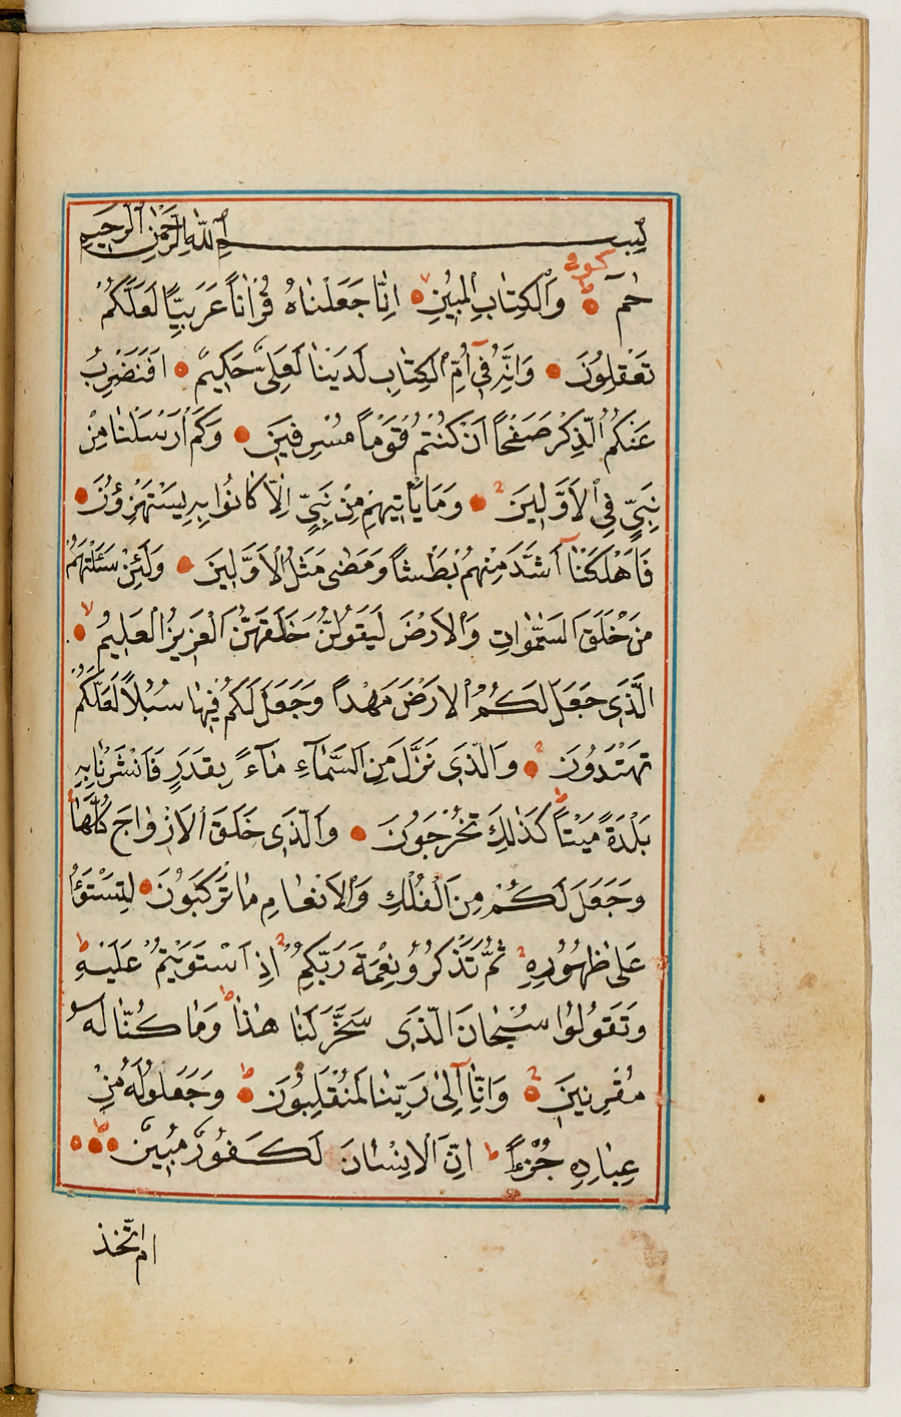 بسم الله الرحمن الرحيم
كوفى
حٰمٓ ۞ وَالْكِتَابِ الْمُبِينِ ۞ اِنَّا جَعَلْنَاهُ قُرْاٰنًا عَرَبِيًّا لَعَلَّكُمْ
تَعْقِلُونَ ۞ وَاِنَّهُ فِٓي اُمِّ الْكِتَابِ لَدَيْنَا لَعَلِيٌّ حَكِيمٌ ۞ اَفَنَضْرِبُ
عَنْكُمُ الذِّكْرَ صَفْحًا اَنْ كُنْتُمْ قَوْمًا مُسْرِفِينَ ۞ وَكَمْ اَرْسَلْنَا مِنْ
نَبِيٍّ فِي الْاَوَّلِينَ ۞ وَمَا يَاْتِيهِمْ مِنْ نَبِيٍّ اِلَّا كَانُوا بِهِ يَسْتَهْزِؤُنَ ۞
فَاَهْلَكْنَٓا اَشَدَّ مِنْهُمْ بَطْشًا وَمَضٰى مَثَلُ الْاَوَّلِينَ ۞ وَلَئِنْ سَئَلْتَهُمْ
مَنْ خَلَقَ السَّمٰوَاتِ وَالْاَرْضَ لَيَقُولُنَّ خَلَقَهُنَّ الْعَزِيزُ الْعَلِيمُ ۞
اَلَّذِي جَعَلَ لَكُمُ الْاَرْضَ مَهْدًا وَجَعَلَ لَكُمْ فِيهَا سُبُلًا لَعَلَّكُمْ
تَهْتَدُونَ ۞ وَالَّذِي نَزَّلَ مِنَ السَّمَٓاءِ مَٓاءً بِقَدَرٍ فَاَنْشَرْنَا بِهِ
بَلْدَةً مَيْتًا كَذٰلِكَ تُخْرَجُونَ ۞ وَالَّذِي خَلَقَ الْاَزْوَاجَ كُلَّهَا
وَجَعَلَ لَكُمْ مِنَ الْفُلْكِ وَالْاَنْعَامِ مَا تَرْكَبُونَ ۞ لِتَسْتَوُ۫ا
عَلٰى ظُهُورِهِ ثُمَّ تَذْكُرُوا نِعْمَةَ رَبِّكُمْ اِذَا اسْتَوَيْتُمْ عَلَيْهِ
وَتَقُولُوا سُبْحَانَ الَّذِي سَخَّرَ لَنَا هٰذَا وَمَا كُنَّا لَهُ
مُقْرِنِينَ ۞ وَاِنَّٓا اِلٰى رَبِّنَا لَمُنْقَلِبُونَ ۞ وَجَعَلُوا لَهُ مِنْ
عِبَادِهِ جُزْءًا اِنَّ الْاِنْسَانَ لَكَفُورٌ مُبِينٌ ۞
ام اتّخذ